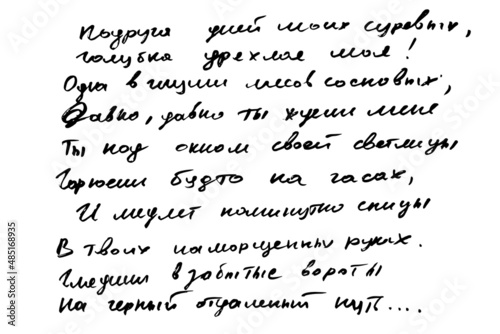 Подруга дней моих суровых,
голубка дрехлая моя!
Одна в глуши лесов сосновых,
Давно, давно ты ждеши меня
Ты под окном своей светлицы
Горюеши будто на часах,
И медлят поминутно спицы
В твоих наморщенных руках.
Глядиши в забытые вороты
На черный отдаленный путь....
Adobe Stock | #485168935